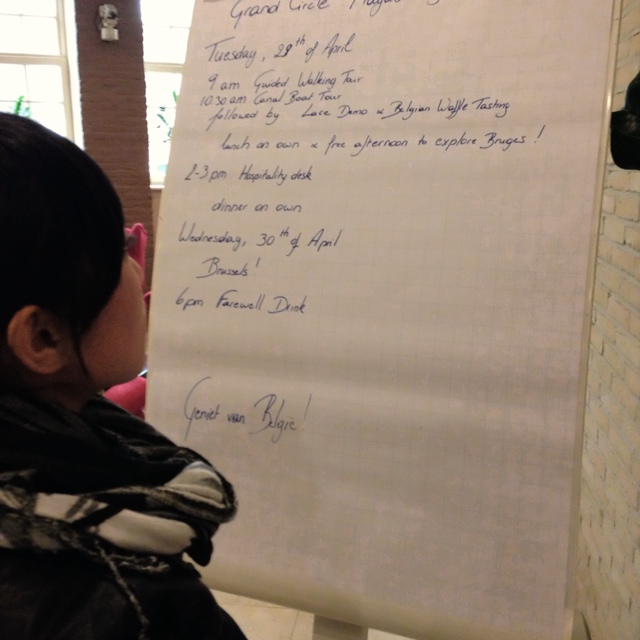 Grand Circle
Tuesday, 29th of April
9 am Guided Walking Tour
10.30 am Canal Boat Tour
followed by Lace Demo & Belgian Waffle Tasting
lunch on own & free afternoon to explore Bruges!
2-3 pm Hospitality desk
dinner on own
Wednesday, 30th of April
Brussels!
6pm Farewell Drink
Geniet van België!